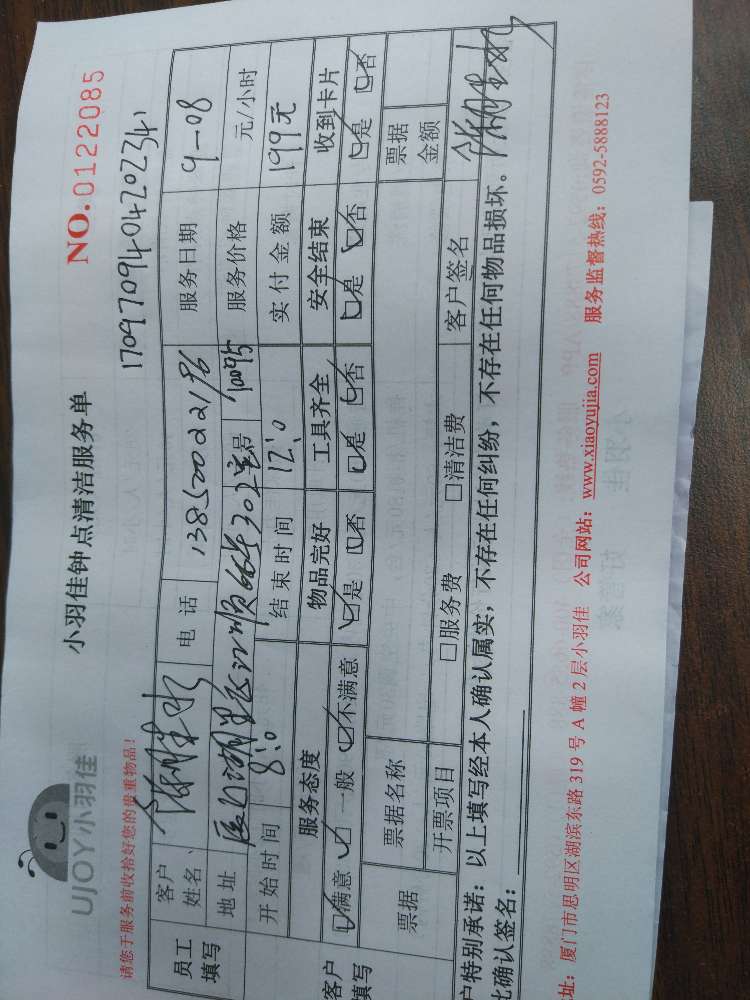 UJOY小羽佳
请您于服务前收拾好您的贵重物品!
小羽佳钟点清洁服务单
NO.0122085
1709709404202341
员工填写
客户姓名、
电 话 13850022196
服务日期 9-08
地址 66号302室
服务价格 元/小时
开始时间 8:0
结束时间 12:0
实付金额 199元
客户填写
服务态度 物品完好 工具齐全 安全结束 收到卡片
满意 一般 不满意 是 否 是 否 是 否 是 否
票据 票据名称 票据金额
开票项目 □服务费 □清洁费 客户签名
户特别承诺:以上填写经本人确认属实,不存在任何纠纷,不存在任何物品损坏。
比确认签名:
址:厦门市思明区湖滨东路 319 号 A 幢 2 层小羽佳 公司网站:www.xiaoyujia.com 服务监督热线:0592-5888123